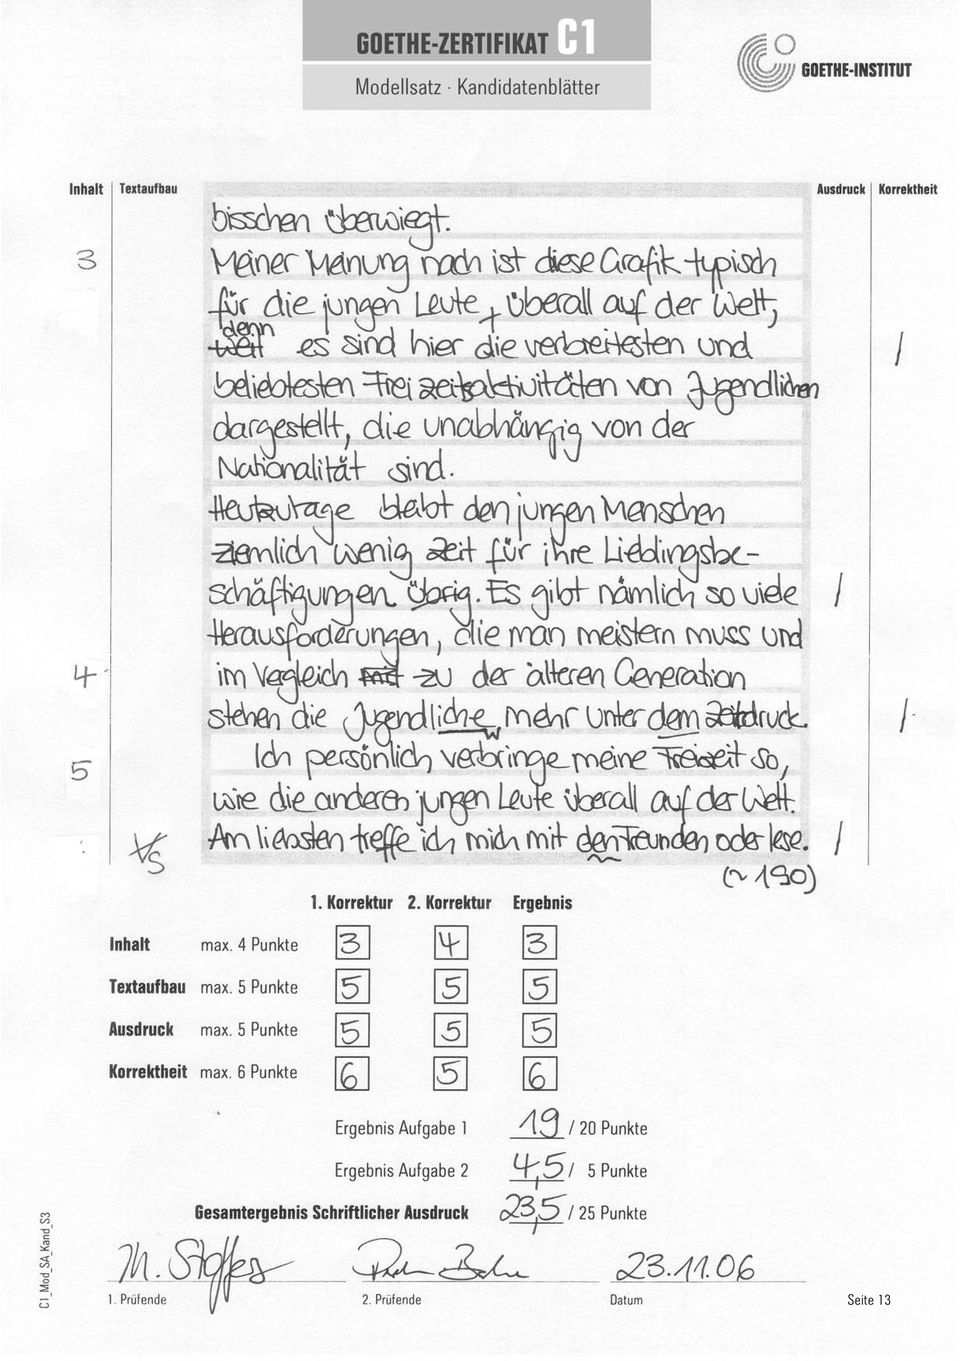 GOETHE-ZERTIFIKAT C1
Modellsatz · Kandidatenblätter
GOETHE-INSTITUT
Inhalt Textaufbau Ausdruck Korrektheit
bisschen überwiegt.
3 Meiner Meinung nach ist diese Grafik typisch
für die jungen Leute, überall auf der Welt,
denn
weil es sind hier die verbreitesten und /
beliebtesten Freizeitsaktivitäten von Jugendlichen
dargestellt, die unabhängig von der
Nationalität sind.
Heutzutage bleibt den jungen Menschen
ziemlich wenig Zeit für ihre Lieblingsbe-
schäftigungen übrig. Es gibt nämlich so viele /
Herausforderungen, die man meistern muss und
4 im Vegleich mit zu der älteren Generation
stehen die Jugendliche mehr unter dem Zeitdruck. /
5 Ich persönlich verbringe meine Freizeit so,
wie die anderen jungen Leute überall auf der Welt.
Am liebsten treffe ich mich mit den Freunden oder lese. /
(~190)
1. Korrektur 2. Korrektur Ergebnis
Inhalt max. 4 Punkte 3 4 3
Textaufbau max. 5 Punkte 5 5 5
Ausdruck max. 5 Punkte 5 5 5
Korrektheit max. 6 Punkte 6 5 6
Ergebnis Aufgabe 1 19 / 20 Punkte
Ergebnis Aufgabe 2 4,5 / 5 Punkte
Gesamtergebnis Schriftlicher Ausdruck 23,5 / 25 Punkte
M. 23.11.06
1. Prüfende 2. Prüfende Datum Seite 13
C1_Mod_SA_Kand_S3